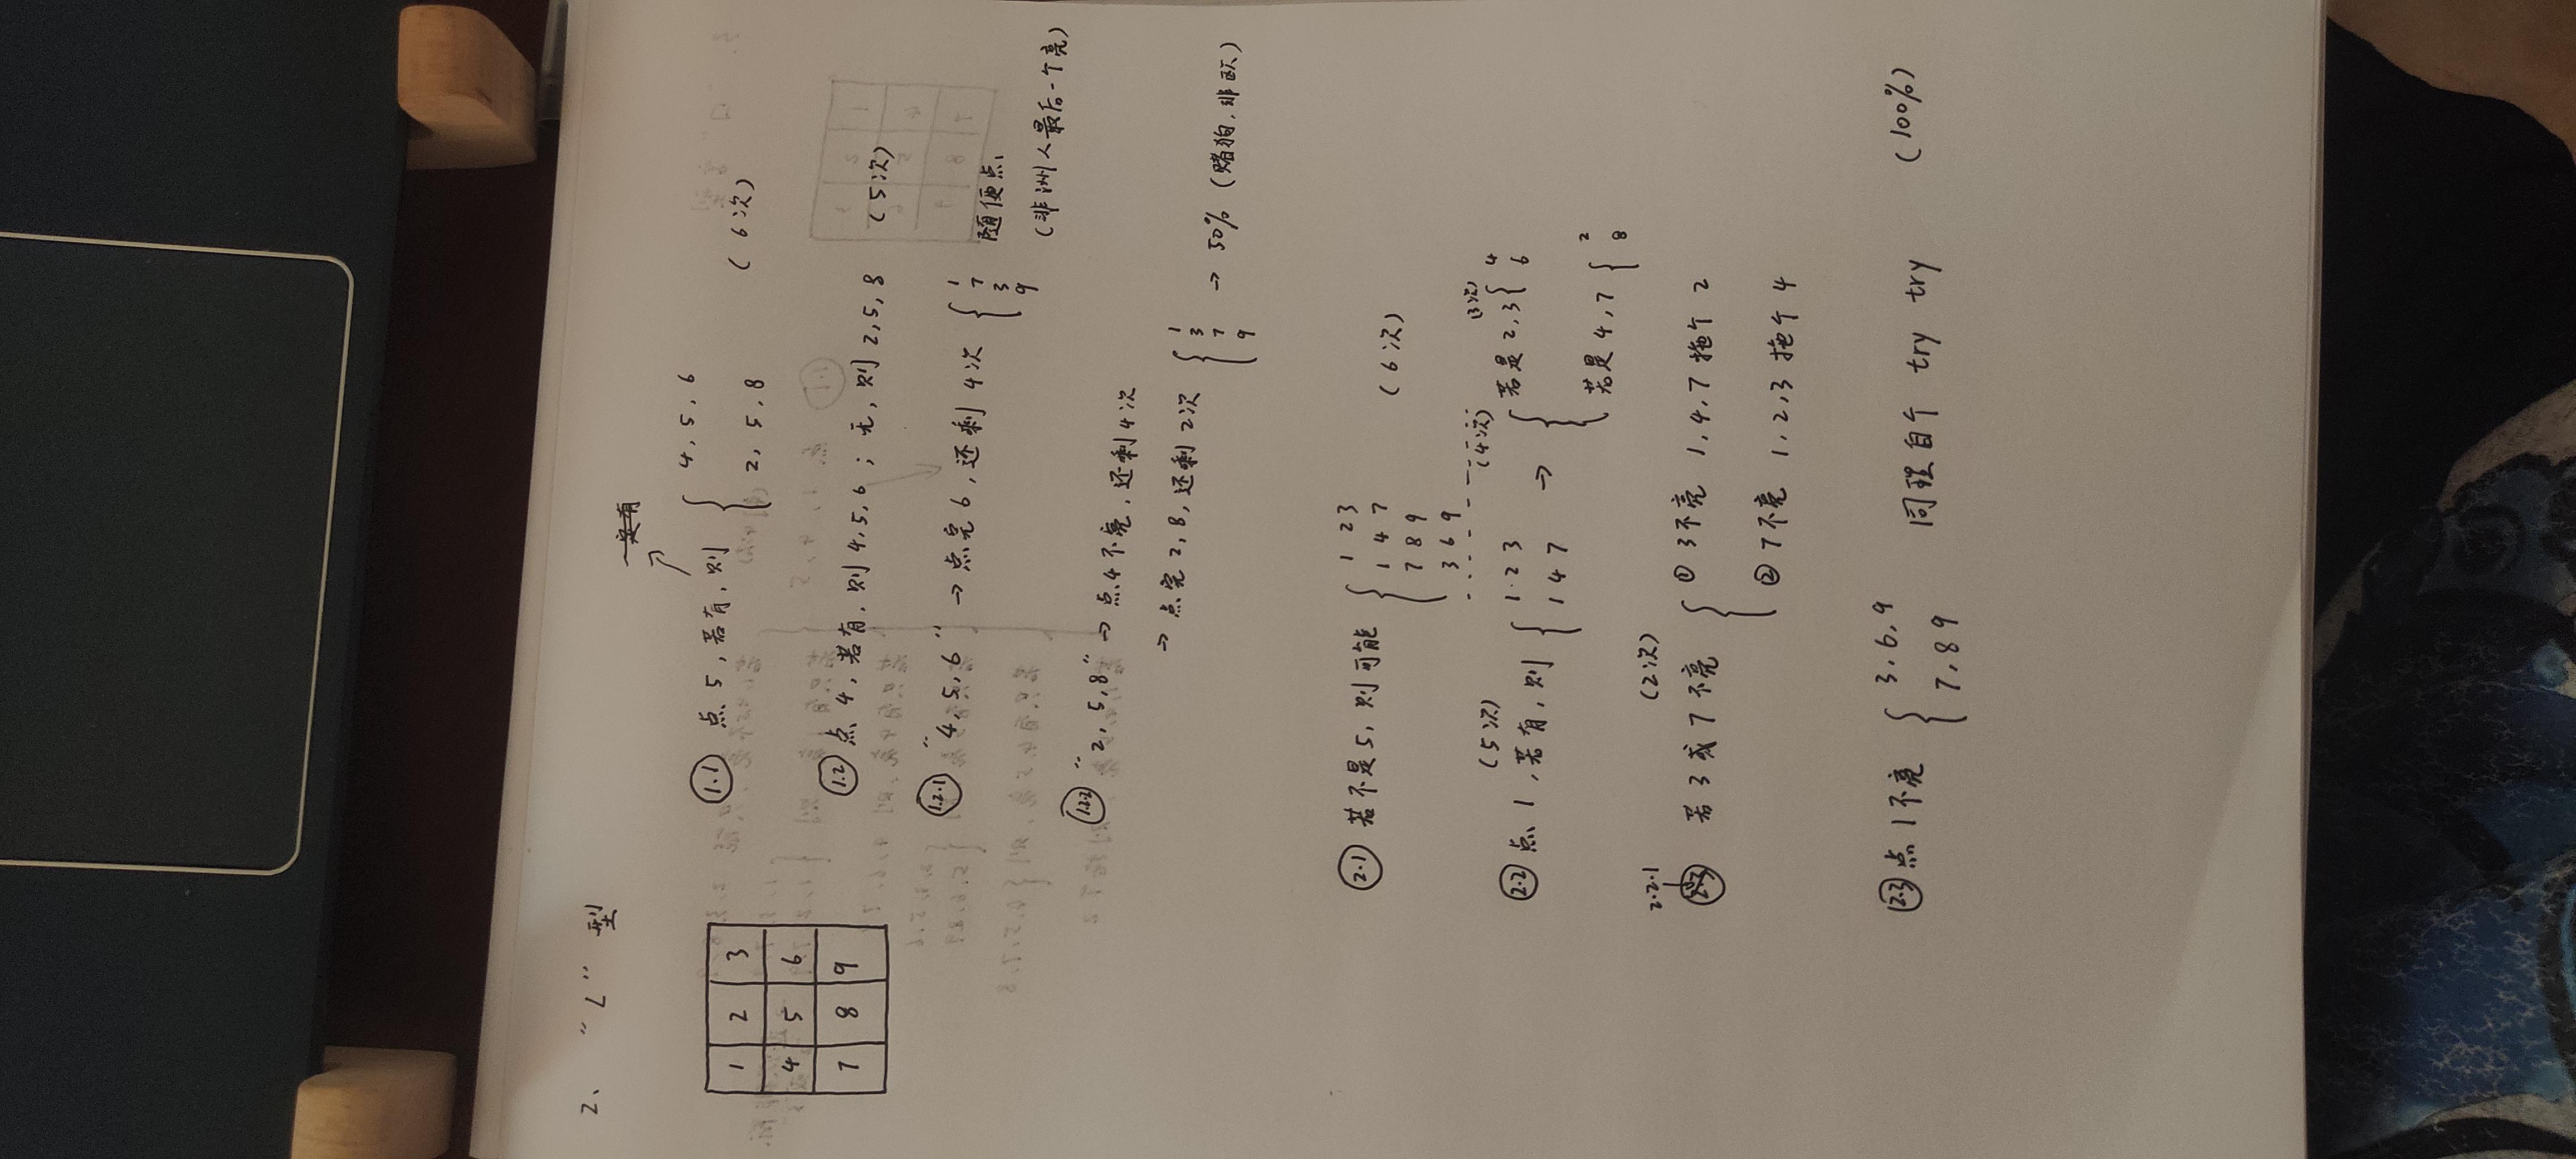 2、 “L” 型
1 2 3
4 5 6
7 8 9
1.1 点 5, 若有, 则 { 4, 5, 6
2, 5, 8 (6次)
1.2 点 4, 若有, 则 4, 5, 6 ; 无, 则 2, 5, 8 (5次)
1.2.1 “4, 5, 6” → 点完 6, 还剩 4次 { 1 7 3 9 随便点
(非洲人最后一个亮)
1.2.2 “2, 5, 8” → 点4不亮, 还剩4次
→ 点完 2, 8, 还剩 2次 { 1 3 7 9 → 50% (赌狗, 非欧)
2.1 若不是 5, 则可能 { 1 2 3
1 4 7
7 8 9
3 6 9 (6次)
(5次) (4次) (3次)
2.2 点 1, 若有, 则 { 1 2 3
1 4 7 → { 若是 2, 3 { 4 6
若是 4, 7 { 2 8
2.2.1 (2次)
若 3 或 7 不亮 { ① 3不亮 1, 4, 7 拖个 2
② 7不亮 1, 2, 3 拖个 4
2.3 点 1 不亮 { 3, 6, 9
7, 8 9 同理自个 try try (100%)